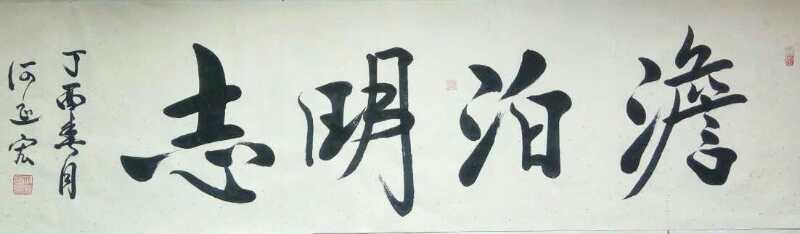 澹泊明志
丁酉春月
何延宏